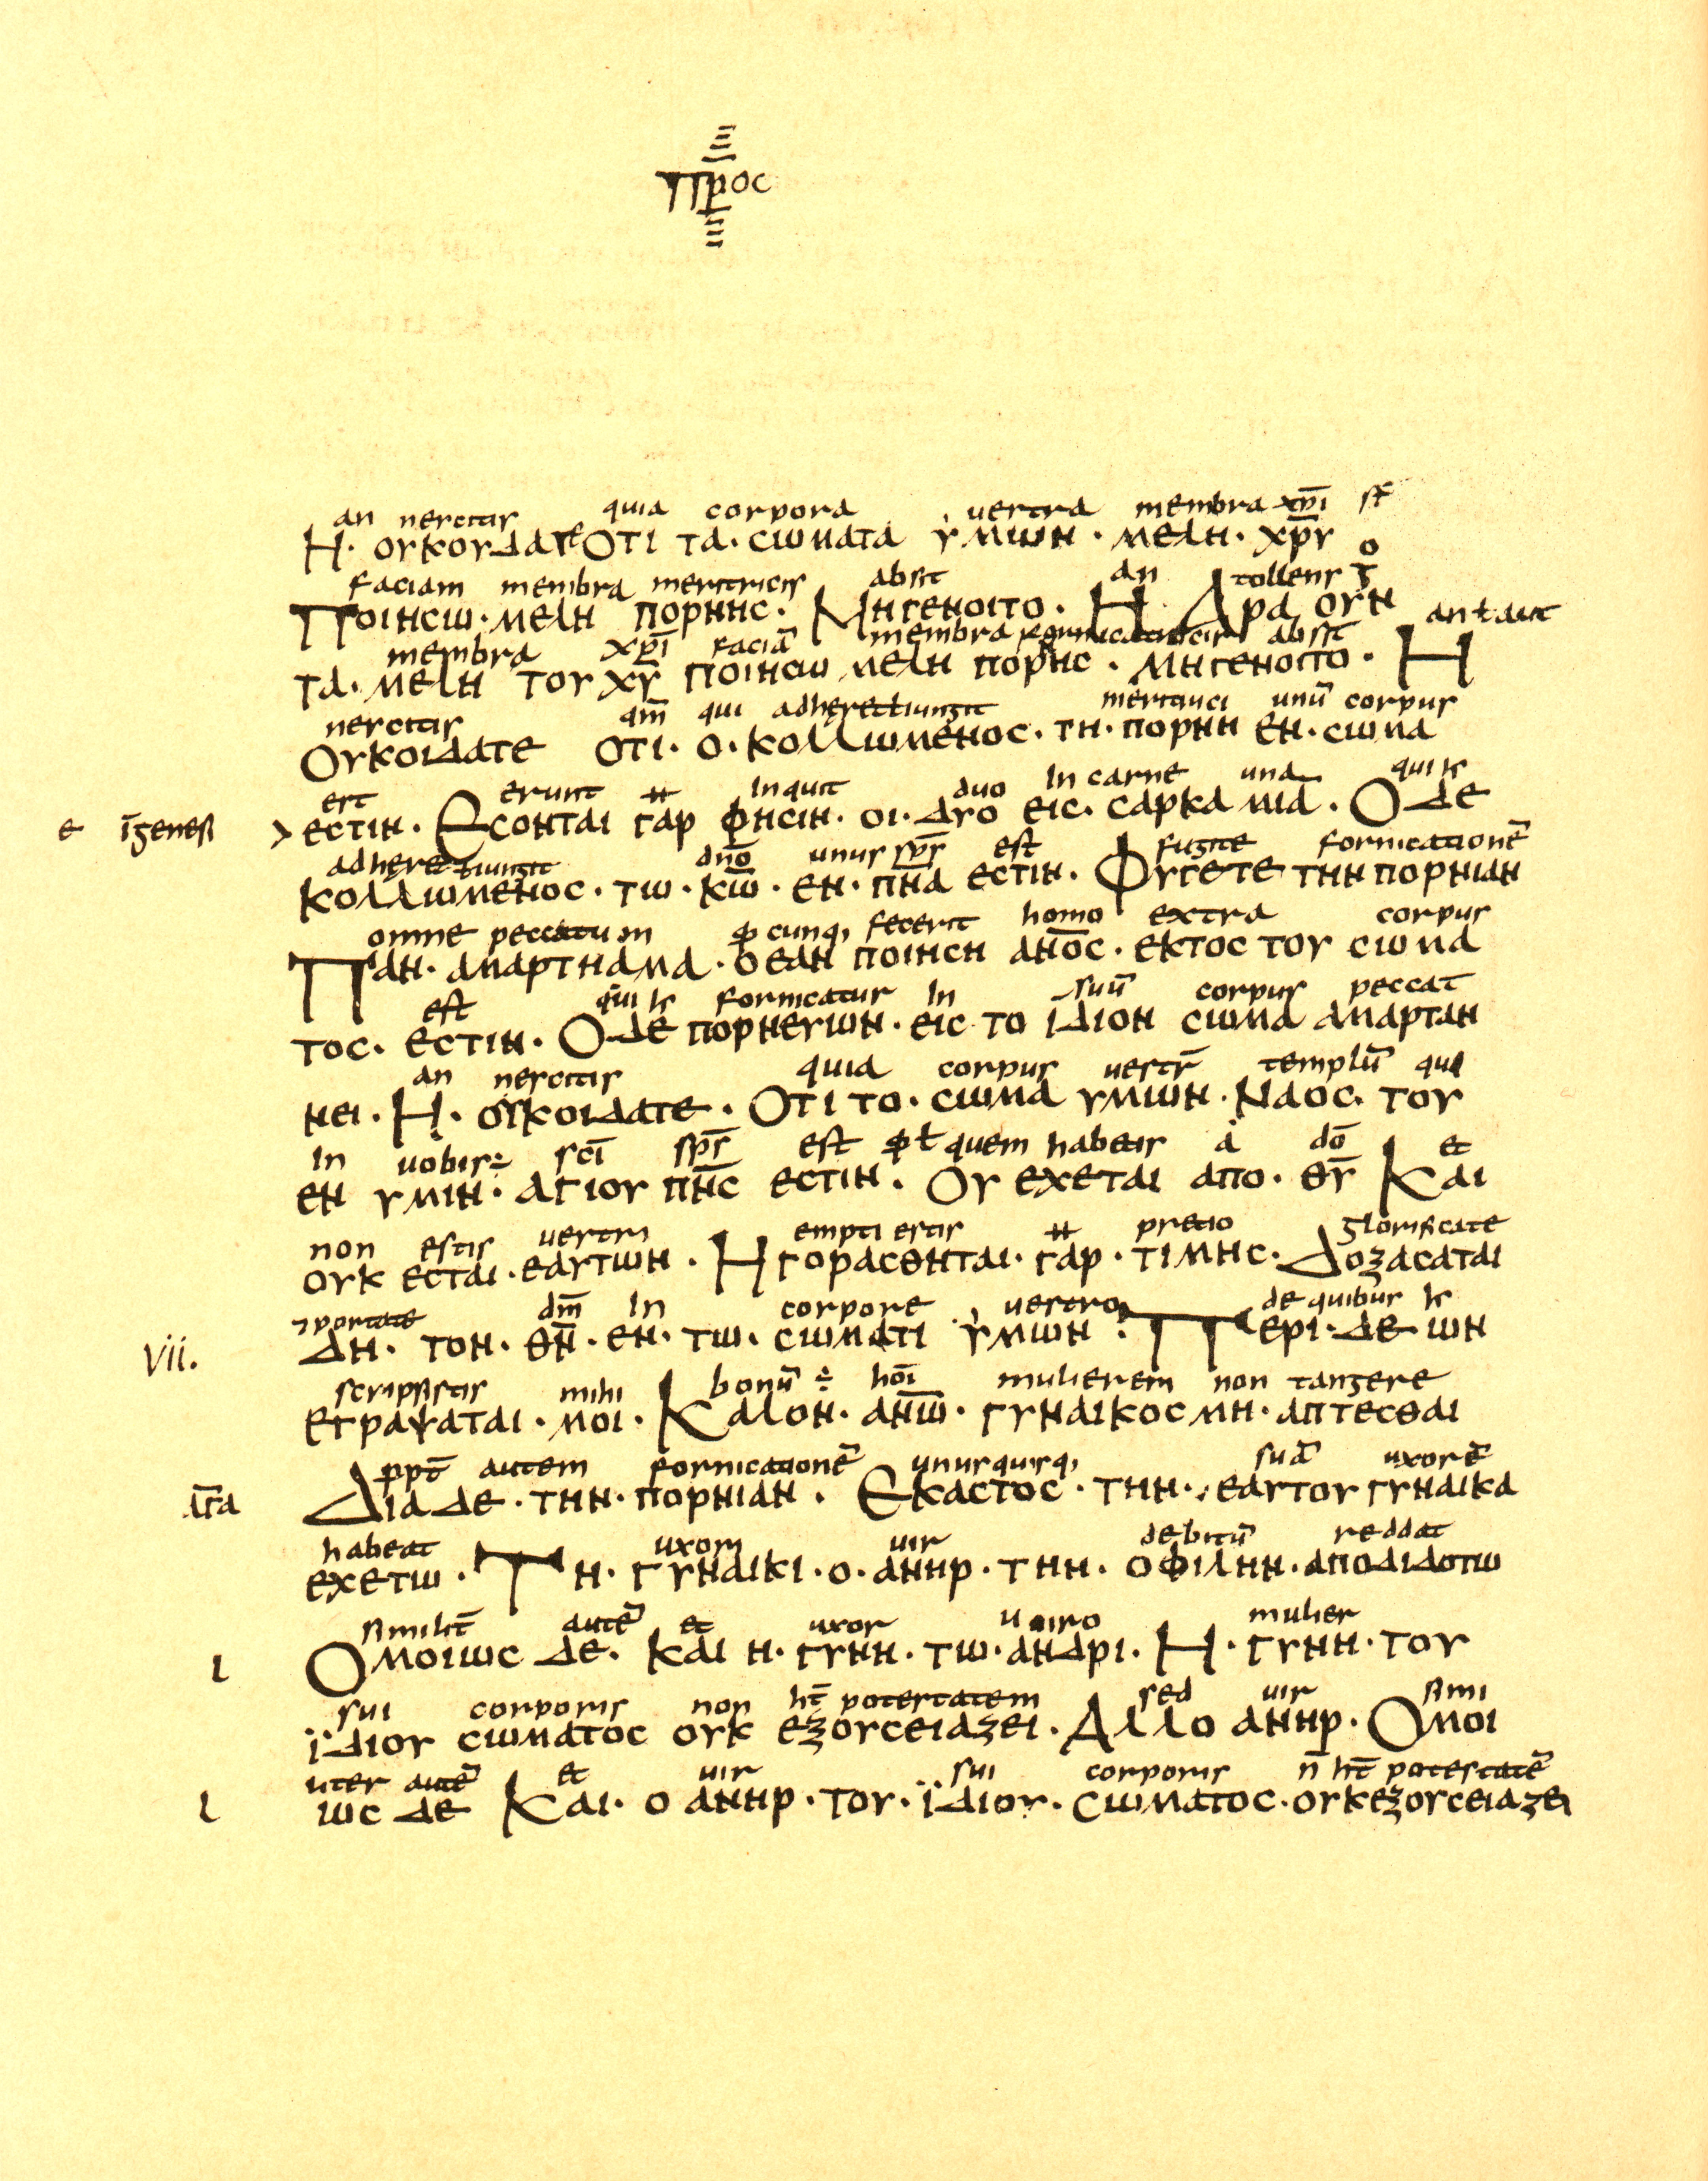 προс
an nescitis quia corpora vestra membra xpi st
Η· ΟΥΚΟΥΔΑΤΕ ΟΤΙ ΤΑ· CΩΜΑΤΑ ΥΜΩΝ · ΜΕΛΗ· ΧΡΥ
faciam membra meritricis absit an tollens
ΠΟΙΗCΩ·ΜΕΛΗ ΠΟΡΝΗC· ΜΗΓΕΝΟΙΤΟ· Η ΑΡΑ ΟΥΝ
an ł aut
membra xpi faciā membra absit
ΤΑ· ΜΕΛΗ ΤΟΥ ΧΥ ΠΟΙΗCΩ ΜΕΛΗ ΠΟΡΗC · ΜΗΓΕΝΟΙΤΟ · Η
nescitis qm̄ qui adheret ł iungit meritrici unū corpus
ΟΥΚΟΙΔΑΤΕ ΟΤΙ· Ο· ΚΟΛΛΩΜΕΝΟC· ΤΗ· ΠΟΡΝΗ ΕΝ· CΩΜΑ
est erunt inquit duo in carne una qui
e īgenesi > ΕCΤΙΝ· ΕCΟΝΤΑΙ ΓΑΡ ΦΗCΙΝ· ΟΙ· ΔΥΟ ΕΙC· CΑΡΚΑ ΜΙΑ· ΟΔΕ
adheret ł iungit dn̄o unus sp̄s est fugite fornicationē
ΚΟΛΛΩΜΕΝΟC· ΤΩ· ΚΩ̄· ΕΝ· ΠΝ̄Α ΕCΤΙΝ· ΦΥΓΕΤΕ ΤΗΝ ΠΟΡΝΙΑΝ
omne peccatum cunq; fecerit homo extra corpus
ΠΑΝ· ΑΜΑΡΤΗΑΜΑ· ΟΕΑΝ ΠΟΙΗCΗ ΑΝ̄ΟC· ΕΚΤΟC ΤΟΥ CΩΜΑ
est qui fornicatur in suū corpus peccat
ΤΟC· ΕCΤΙΝ· ΟΔΕ ΠΟΡΝΕΥΩΝ· ΕΙC ΤΟ ΙΔΙΟΝ CΩΜΑ ΑΜΑΡΤΑΝ
an nescitis quia corpus vestr̄ templū qui
ΝΕΙ· Η· ΟΥΚΟΙΔΑΤΕ· ΟΤΙ ΤΟ· CΩΜΑ ΥΜΩΝ· ΝΑΟC· ΤΟΥ
in vobis ÷ sc̄i sp̄s est ł quem habetis a dō et
ΕΝ ΥΜΙΝ· ΑΓΙΟΥ ΠΝ̄C ΕCΤΙΝ· ΟΥ ΕΧΕΤΑΙ ΑΠΟ· ΘῩ ΚΑΙ
non estis vestri empti estis pretio glorificate
ΟΥΚ ΕCΤΑΙ· ΕΑΥΤΩΝ· ΗΓΟΡΑCΘΗΤΑΙ· ΓΑΡ· ΤΙΜΗC· ΔΟΞΑCΑΤΑΙ
⁊portate dm̄ in corpore vestro de quibus
vii. ΔΗ· ΤΟΝ· ΘΝ̄· ΕΝ· ΤΩ· CΩΜΑΤΙ ΥΜΩΝ : ΠΕΡΙ· ΔΕ ΩΝ
scripsistis mihi bonū ÷ hōi mulierem non tangere
ΕΓΡΑΨΑΤΑΙ· ΜΟΙ· ΚΑΛΟΝ· ΑΝ̄Ω· ΓΥΝΑΙΚΟC ΜΗ· ΑΠΤΕCΘΑΙ
ppt̄ autem fornicationē unusquisq; suā uxorē
ΔΙΑ ΔΕ· ΤΗΝ· ΠΟΡΝΙΑΝ· ΕΚΑCΤΟC· ΤΗΝ· ΕΑΥΤΟΥ ΓΥΝΑΙΚΑ
habeat uxori vir debitū reddat
ΕΧΕΤΩ· ΤΗ· ΓΥΝΑΙΚΙ· Ο· ΑΝΗΡ· ΤΗΝ· ΟΦΙΛΗΝ· ΑΠΟΔΙΔΟΤΩ
similit̄ autē et uxor viro mulier
ι ΟΜΟΙΩC ΔΕ· ΚΑΙ Η· ΓΥΝΗ· ΤΩ· ΑΝΔΡΙ· Η· ΓΥΝΗ· ΤΟΥ
sui corporis non ht̄ potestatem sed vir simi
ΪΔΙΟΥ CΩΜΑΤΟC ΟΥΚ ΕΞΟΥCΕΙΑΖΕΙ· ΑΛΛΟ ΑΝΗΡ· ΟΜΟΙ
liter autē et vir sui corporis n̄ ht̄ potestatē
ι ΩC ΔΕ ΚΑΙ· Ο ΑΝΗΡ· ΤΟΥ· ΪΔΙΟΥ· CΩΜΑΤΟC· ΟΥΚΕΞΟΥCΕΙΑΖΕΙ